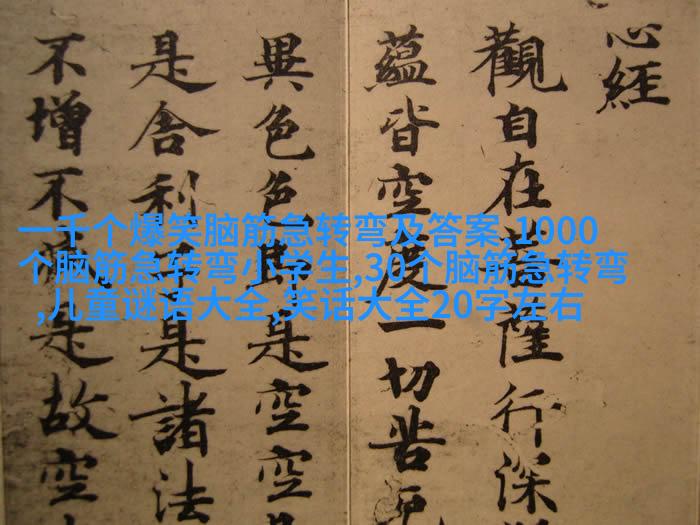 心經
觀自在菩薩行深
蘊皆空度一切苦厄
異色色即是空空
是舍利子是諸法
不增不減是故空
一千个爆笑脑筋急转弯及答案,1000
个脑筋急转弯小学生,30个脑筋急转弯
,儿童谜语大全,笑话大全20字左右